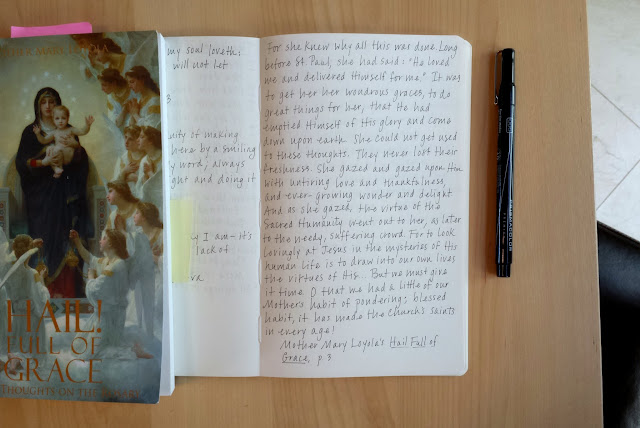 HER MARY LOYOLA
HAIL!
FULL OF
GRACE
THOUGHTS ON THE
my soul loveth:
will not let
3
nity of making
here by a smiling
y word, always
ght and doing it
y I am - it's
lack of
va
For she knew why all this was done. Long
before St. Paul, she had said: "He loved
me and delivered Himself for me." It was
to get her her wondrous graces, to do
great things for her, that He had
emptied Himself of His glory and come
down upon earth. She could not get used
to these thoughts. They never lost their
freshness. She gazed and gazed upon Him
with untiring love and thankfulness,
and ever-growing wonder and delight.
And as she gazed, the virtue of this
Sacred Humanity went out to her, as later
to the needy, suffering crowd. For to look
lovingly at Jesus in the mysteries of His
human life is to draw into our own lives
the virtues of His. But we must give
it time. O that we had a little of our
Mother's habit of pondering; blessed
habit, it has made the Church's saints
in every age!
Mother Mary Loyola's Hail Full of
Grace, p. 3
PRISMACOLOR